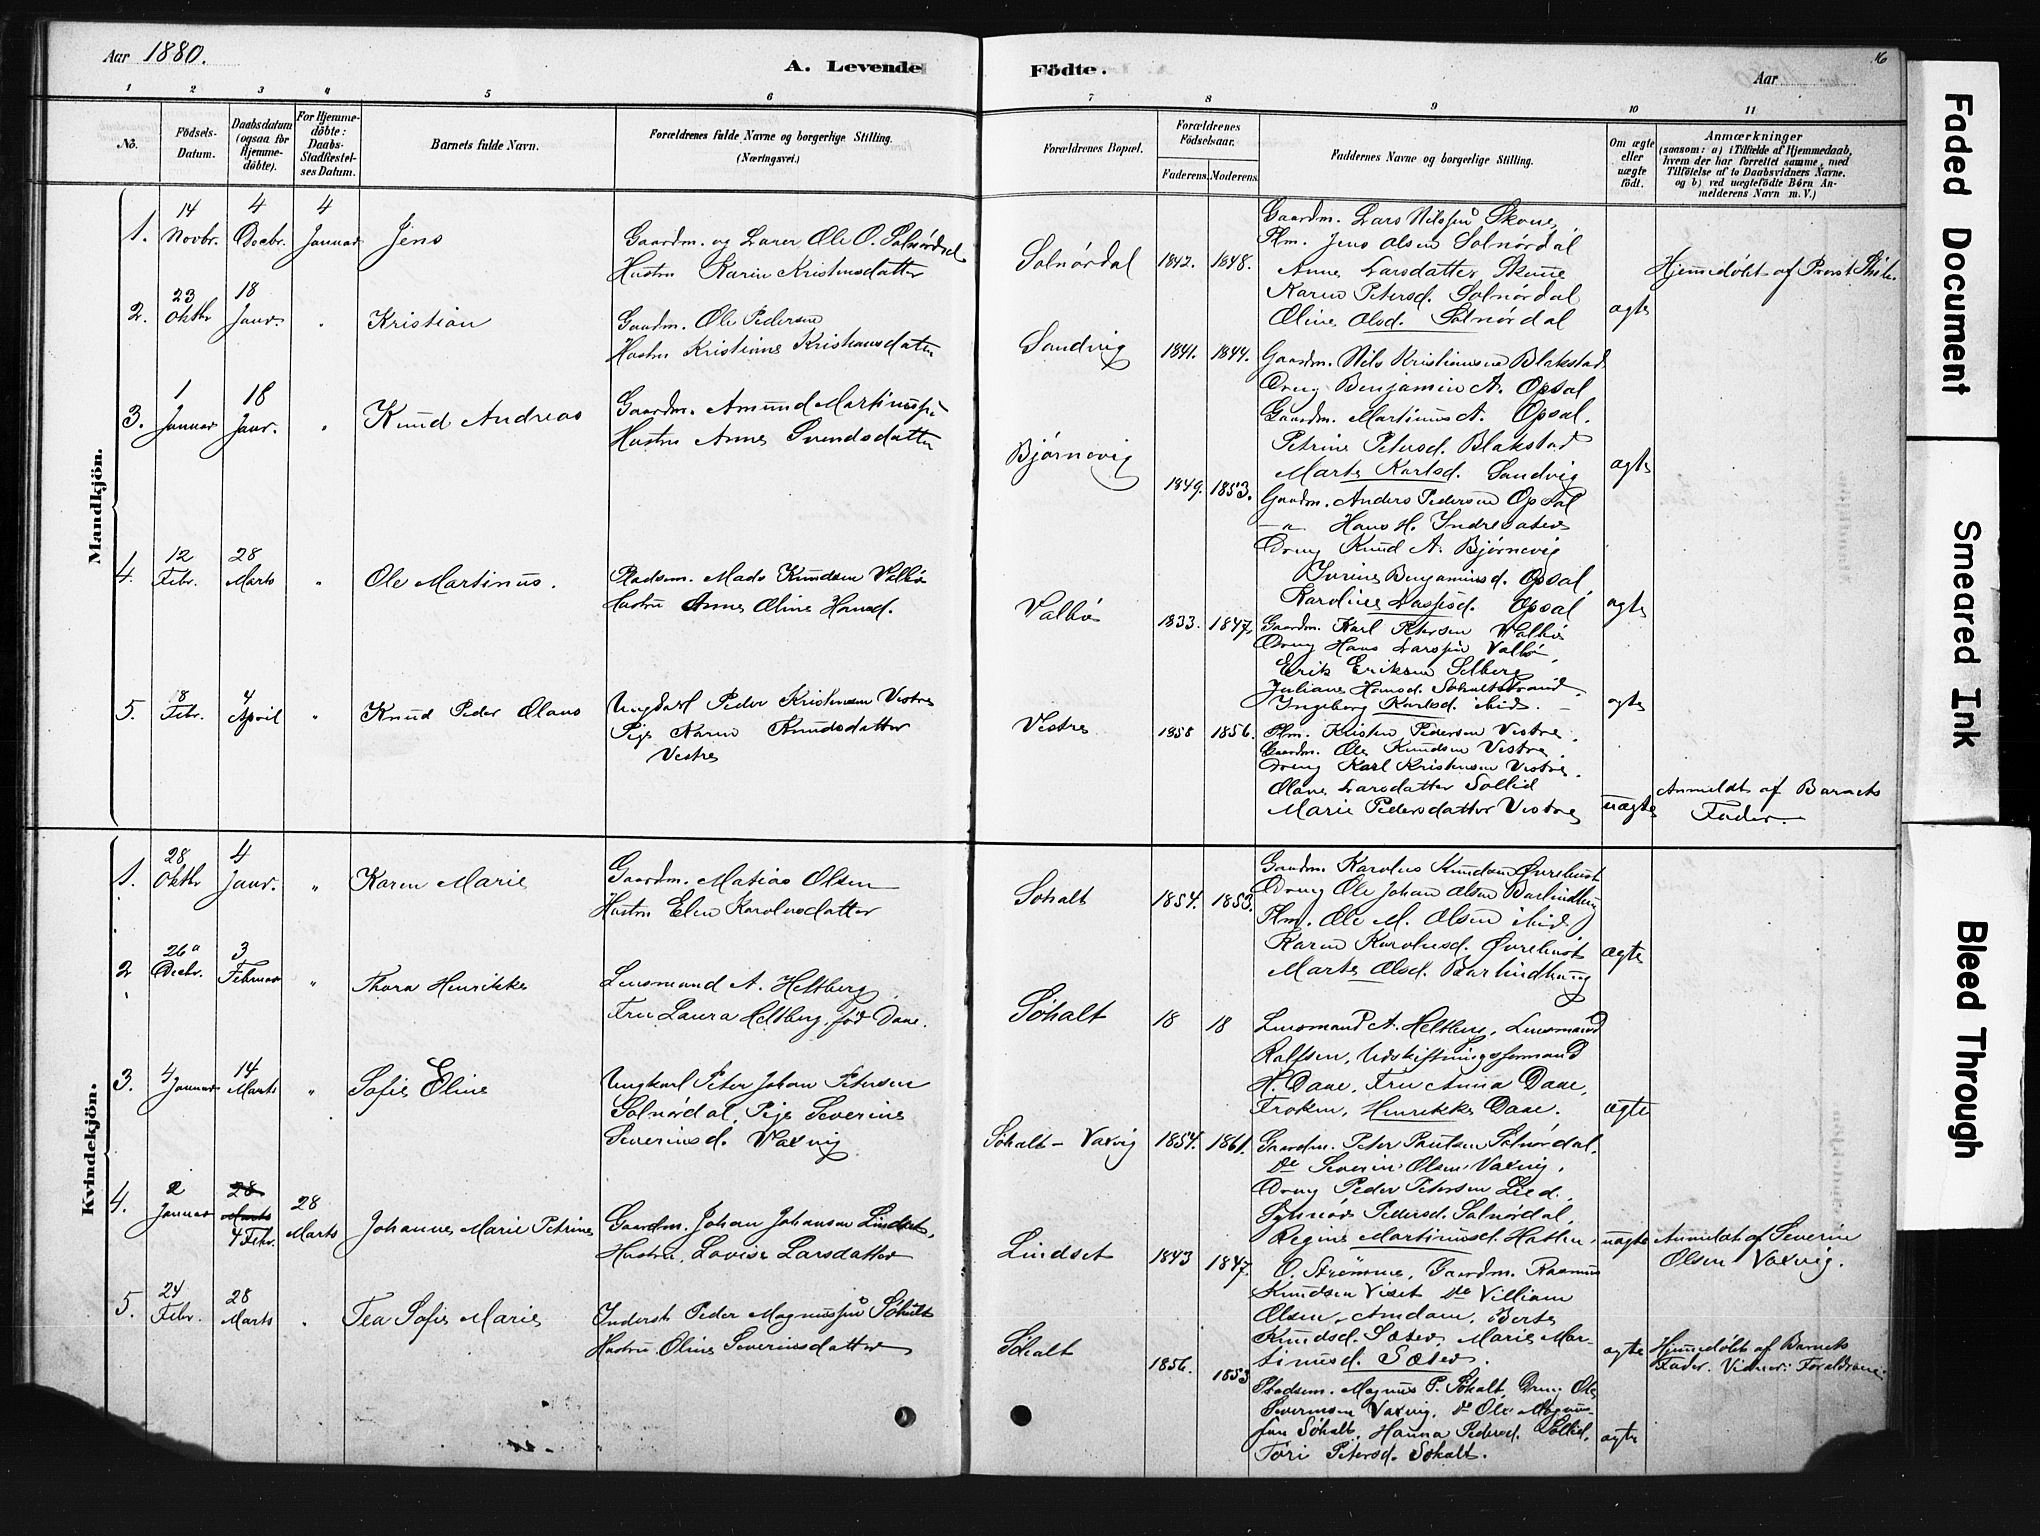 Aar 1880.
A. Levende Födte.
Aar
16
1 2 3 4 5 6 7 8 9 10 11
No.
Födsels-Datum.
Daabsdatum (ogsaa for Hjemme-döbte).
For Hjemme-döbte: Daabs-Stadfæstel-ses Datum.
Barnets fulde Navn.
Forældrenes fulde Navne og borgerlige Stilling. (Næringsvei.)
Forældrenes Bopæl.
Forældrenes Födselsaar.
Faderens. Moderens.
Faddernes Navne og borgerlige Stilling.
Om ægte eller uægte födt.
Anmærkninger
(saasom: a) i Tilfælde af Hjemmedaab,
hvem der har forrettet samme, med
Tilföielse af to Daabsvidners Navne,
og b) ved uægtefödte Børn An-
melderens Navn m. V.)
Mandkjön.
1. 14 Novbr. 4 Decbr. 4 Januar Jens
Gaardm. og Lærer Ole O. Solnørdal
Hustru Karen Kristensdatter
Solnørdal 1842. 1848.
Gaardm. Lars Nilssen Skone,
Plm. Jens Olsen Solnørdal
Anne Larsdatter Skone
Karen Petersd. Solnørdal
Oline Olsd. Solnørdal
ægte
Hjemmedøbt af Provst
2. 23 Oktbr 18 Janr. " Kristian
Gaardm. Ole Pedersen
Hustru Kristiane Kristiansdatter
Sandvig 1841. 1844.
Gaardm. Nils Kristiansen Blakstad
Dreng Benjamin A. Opsal
Gaardm. Martinus A. Opsal.
Petrine Petersd. Blakstad
Marte Karlsd. Sandvig
ægte
3. 1 Januar 18 Janr. " Knud Andreas
Gaardm. Amund Martinussen
Hustru Anne Svendsdatter
Bjørnevig 1849. 1853.
Gaardm. Anders Pedersen Opsal
— " Hans H. Indresæter
Dreng Knud A. Bjørnevig
Benjaminsd. Opsal,
Karoline Opsal
ægte
4. 12 Febr. 28 Marts " Ole Martinus.
Pladsm. Mads Knudsen Valbø
Hustru Anne Oline Hansd.
Valbø 1833. 1847.
Gaardm. Karl Petersen Valbø
Dreng Hans Larssen Valbø,
Erik Eriksen Selberg
Juliane Hansd. Søholtstrand,
Ingeborg Karlsd. ibid. —
ægte
5. 8 Febr. 4 April " Knud Peder Olaus
Ungkarl Peder Kristensen Vestre
Pige Karen Knudsdatter
Vestre
Vestre 1858 1856.
Plm. Kristen Pedersen Vestre,
Gaardm. Ole Knudsen Vestre,
Dreng Karl Kristensen Vestre.
Olave Larsdatter Sollid
Marie Pedersdatter Vestre
uægte
Anmeldt af Barnets
Fader.
Kvindekjön.
1. 28 Oktbr 4 Janr. " Karen Marie
Gaardm. Matias Olsen
Hustru Elen Karolusdatter
Søholt 1854. 1853.
Gaardm. Karolus Knudsen Øvrelid
Dreng Ole Johan Olsen Barlindhaug
Plm. Ole M. Olsen ibid
Karen Karolusd.
Marte Olsd. Barlindhaug
ægte
2. 26 Decbr. 3 Februar " Thora Henrikke
Lensmand A. Heltberg,
Fru Laura Heltberg, fød Daae.
Søholt 18 18
Lensmand A. Heltberg, Lensmand
Rolfsen, Udskiftningsformand
H. Daae, Fru Anna Daae,
Frøken, Henrikke Daae.
ægte
3. 4 Januar 14 Marts " Sofie Eline
Ungkarl Peter Johan Petersen
Solnørdal, Pige Severine
Severinsd. Vaxvig
Søholt – Vaxvig 1854. 1861.
Gaardm. Peter Paulsen Solnørdal.
Do Severin Olsen Vaxvig,
Dreng Peder Petersen Lied.
Pedersd. Solnørdal,
Regine Martinusd. Hatlen.
uægte
Anmeldt af Severin
Olsen Vaxvig.
4. 2 Januar 28 Marts 4 Febr. 28 Marts Johanne Marie Petrine
Gaardm. Johan Johansen Lindset,
Hustru. Lovise Larsdatter
Lindset 1843 1847.
O. Strømme, Gaardm. Rasmus
Knudsen Viset Do Villiam
Olsen Amdam, Berte
Knudsd. Sæter, Marie Mar-
tinusd. Sæter.
ægte
Hjemmedøbt af Barnets
Fader. Vidner: Forældrene.
5. 24 Febr. 28 Marts " Tea Sofie Marie
Inderst Peder Magnussen Søholt
Hustru Oline Severinsdatter
Søholt 1856. 1853
Pladsm. Magnus P. Søholt, Dreng Ole
Severinsen Vaxvig, do Ole Magnus-
sen Søholt, Hanna Pedersd. Sollid,
Tøri Petersd. Søholt.
ægte
Faded Document
Smeared Ink
Bleed Through